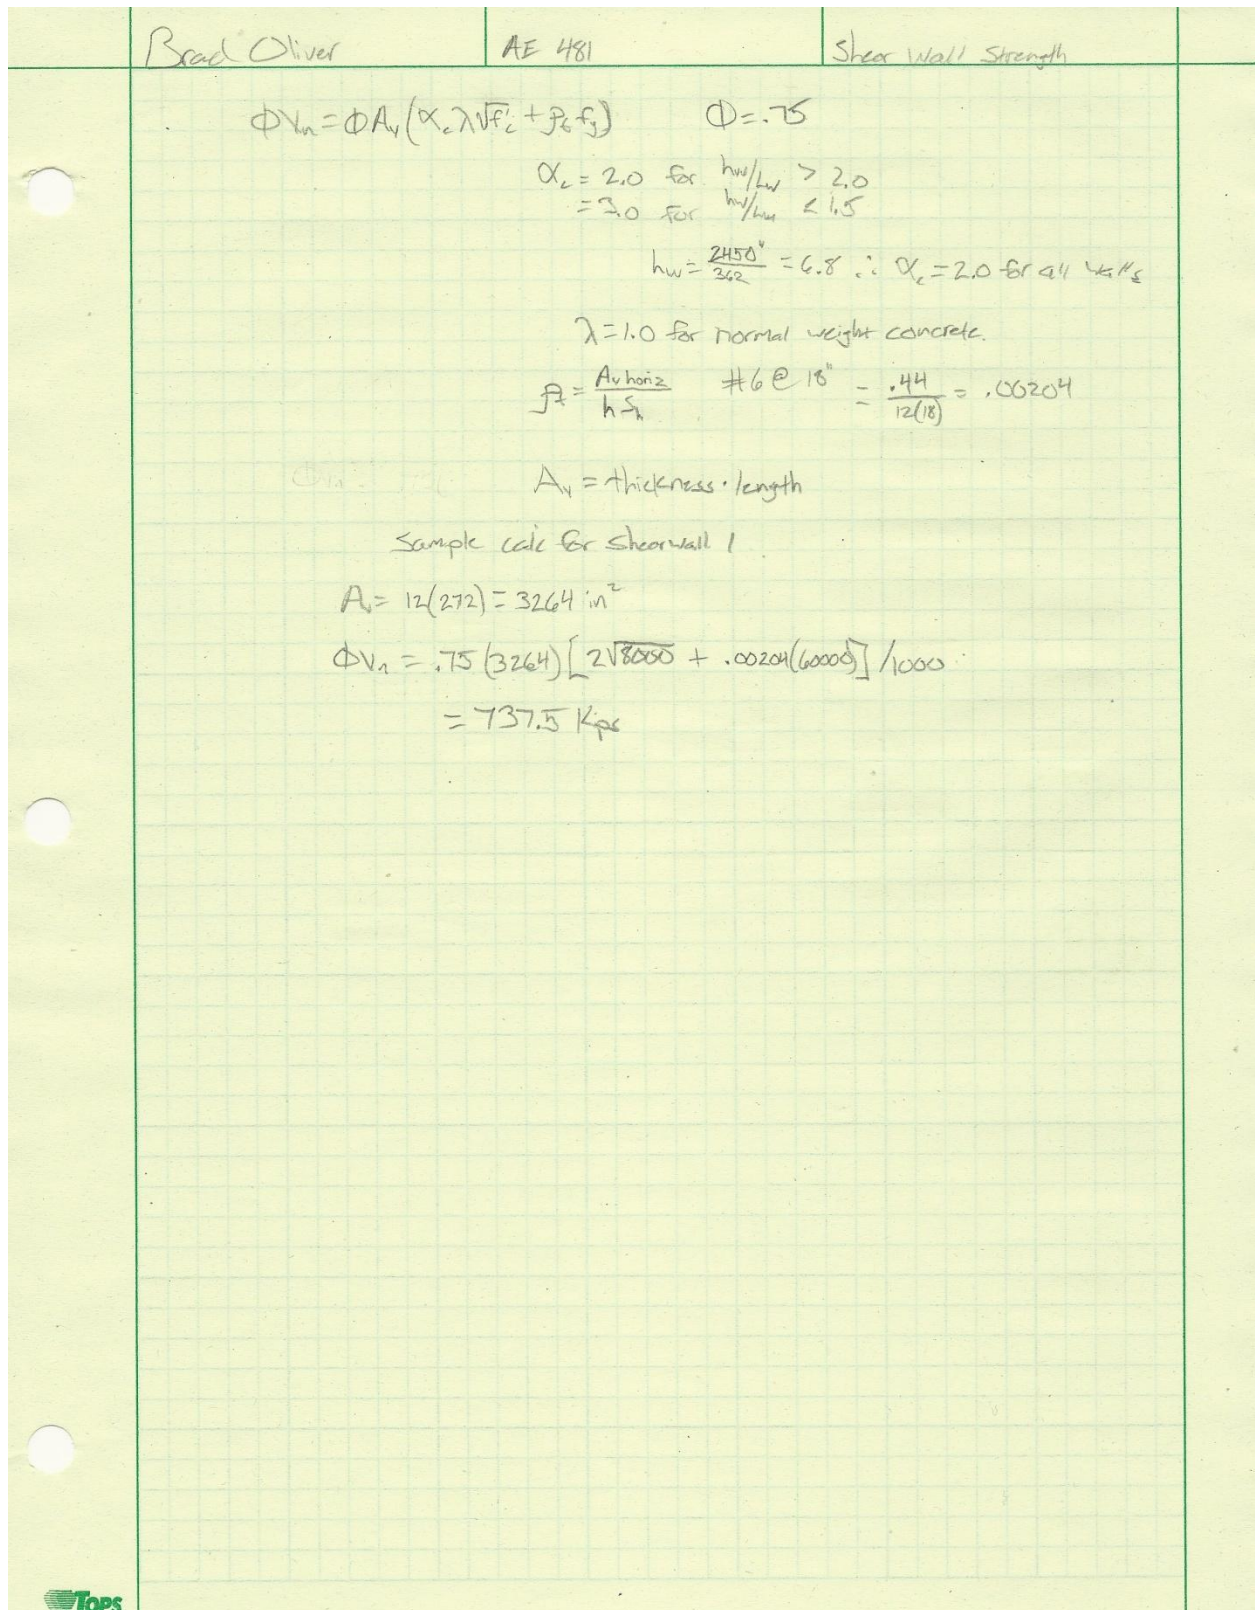 Brad Oliver AE 481 Shear Wall Strength
ΦVn = ΦAv(αcλ√f'c + ρt fy) Φ = .75
αc = 2.0 for hw/Lw > 2.0
= 3.0 for hw/Lw < 1.5
hw = 2450"/362 = 6.8 ∴ αc = 2.0 for all walls
λ = 1.0 for normal weight concrete.
ρt = Av horiz/h Sh #6 @ 18" = .44/12(18) = .00204
Av = thickness · length
Sample calc for Shearwall 1
A = 12(272) = 3264 in²
ΦVn = .75(3264)[2√8000 + .00204(60000)]/1000
= 737.5 Kips
TOPS